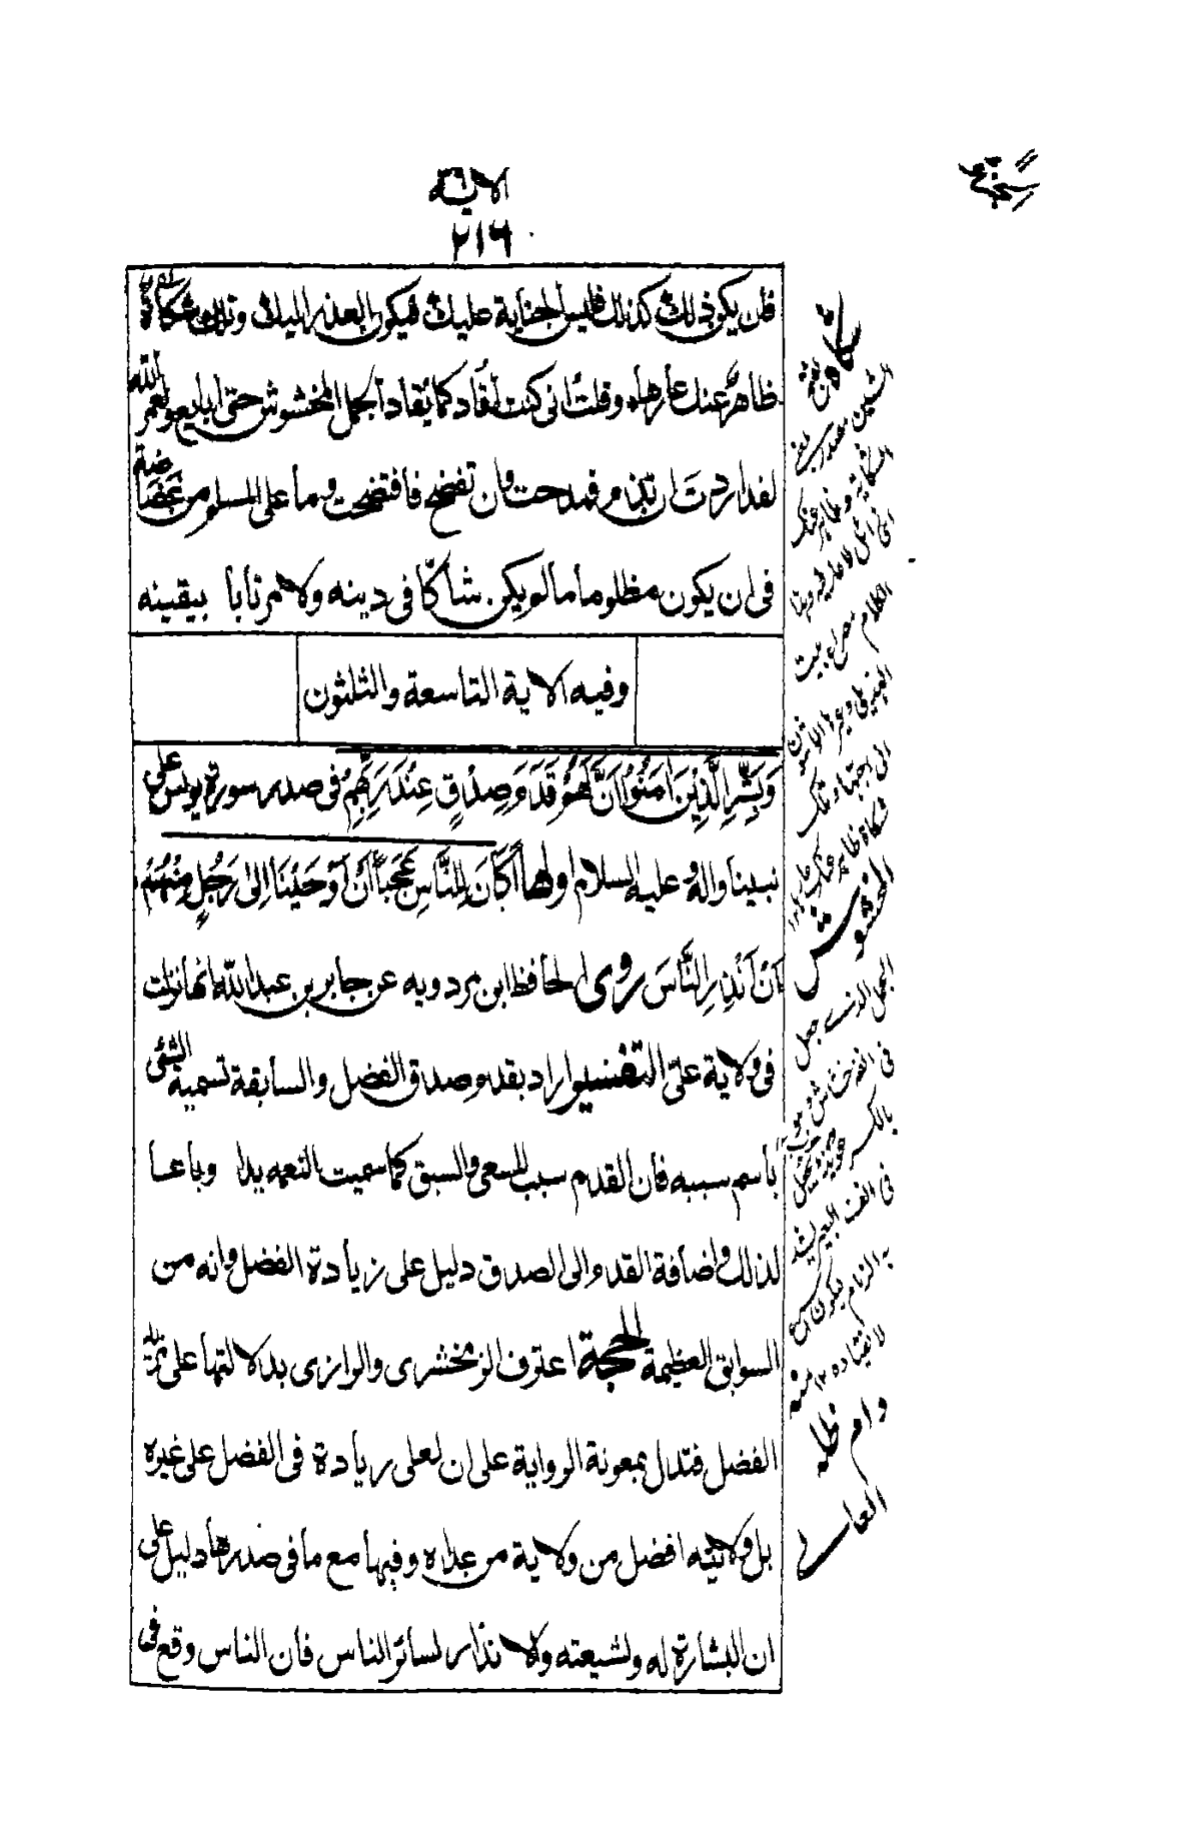 الاية ٣٩
٢١٦
فان يكن ذلك كذلك فليس الجناية عليك فيكون العذر اليك وتلك شكاة
ظاهر عنك عارها وقلت انى كنت اقاد كما يقاد الجمل المخشوش حتى ابايع ولعمر الله
لقد اردت ان تذم فمدحت وان تفضح فافتضحت وما على المسلم من غضاضة
فى ان يكون مظلوما مالم يكن شاكّا فى دينه ولا مرتابا بيقينه
وفيه الاية التاسعة والثلثون
وَبَشِّرِ الَّذِيْنَ اٰمَنُوْا اَنَّ لَهُمْ قَدَمَ صِدْقٍ عِنْدَ رَبِّهِمْ فى صدر سورة يونس على
نبينا واله وعليه السلام اولها اَكَانَ لِلنَّاسِ عَجَبًا اَنْ اَوْحَيْنَا اِلٰى رَجُلٍ مِنْهُمْ
اَنْ اَنْذِرِ النَّاسَ روى الحافظ ابن مردويه عن جابر بن عبد الله انها نزلت
فى ولاية علىّ التفسير اراد بقدم صدق الفضل والسابقة تسمية الشئ
باسم سببه فان القدم سبب السعى والسبق كما سميت النعمة يدا وباعا
لذلك واضافة القدم الى الصدق دليل على زيادة الفضل وانه من
السوابق العظيمة الحجة اعترف الزمخشرى والرازى بدلالتها على
الفضل فتدل بمعونة الرواية على ان لعلى زيادة فى الفضل على غيره
بل ولايته افضل من ولاية من عداه وفيها مع ما فى صدرها دليل على
ان البشارة له ولشيعته والانذار لسائر الناس فان الناس وقع فى
المخشوش
الجمل الذى جعل
فى انفه خشاش
بالكسر
فى انف البعير يشد
به الزمام ليكون اسرع
لانقياده ١٢ منه
دام ظله
العالى